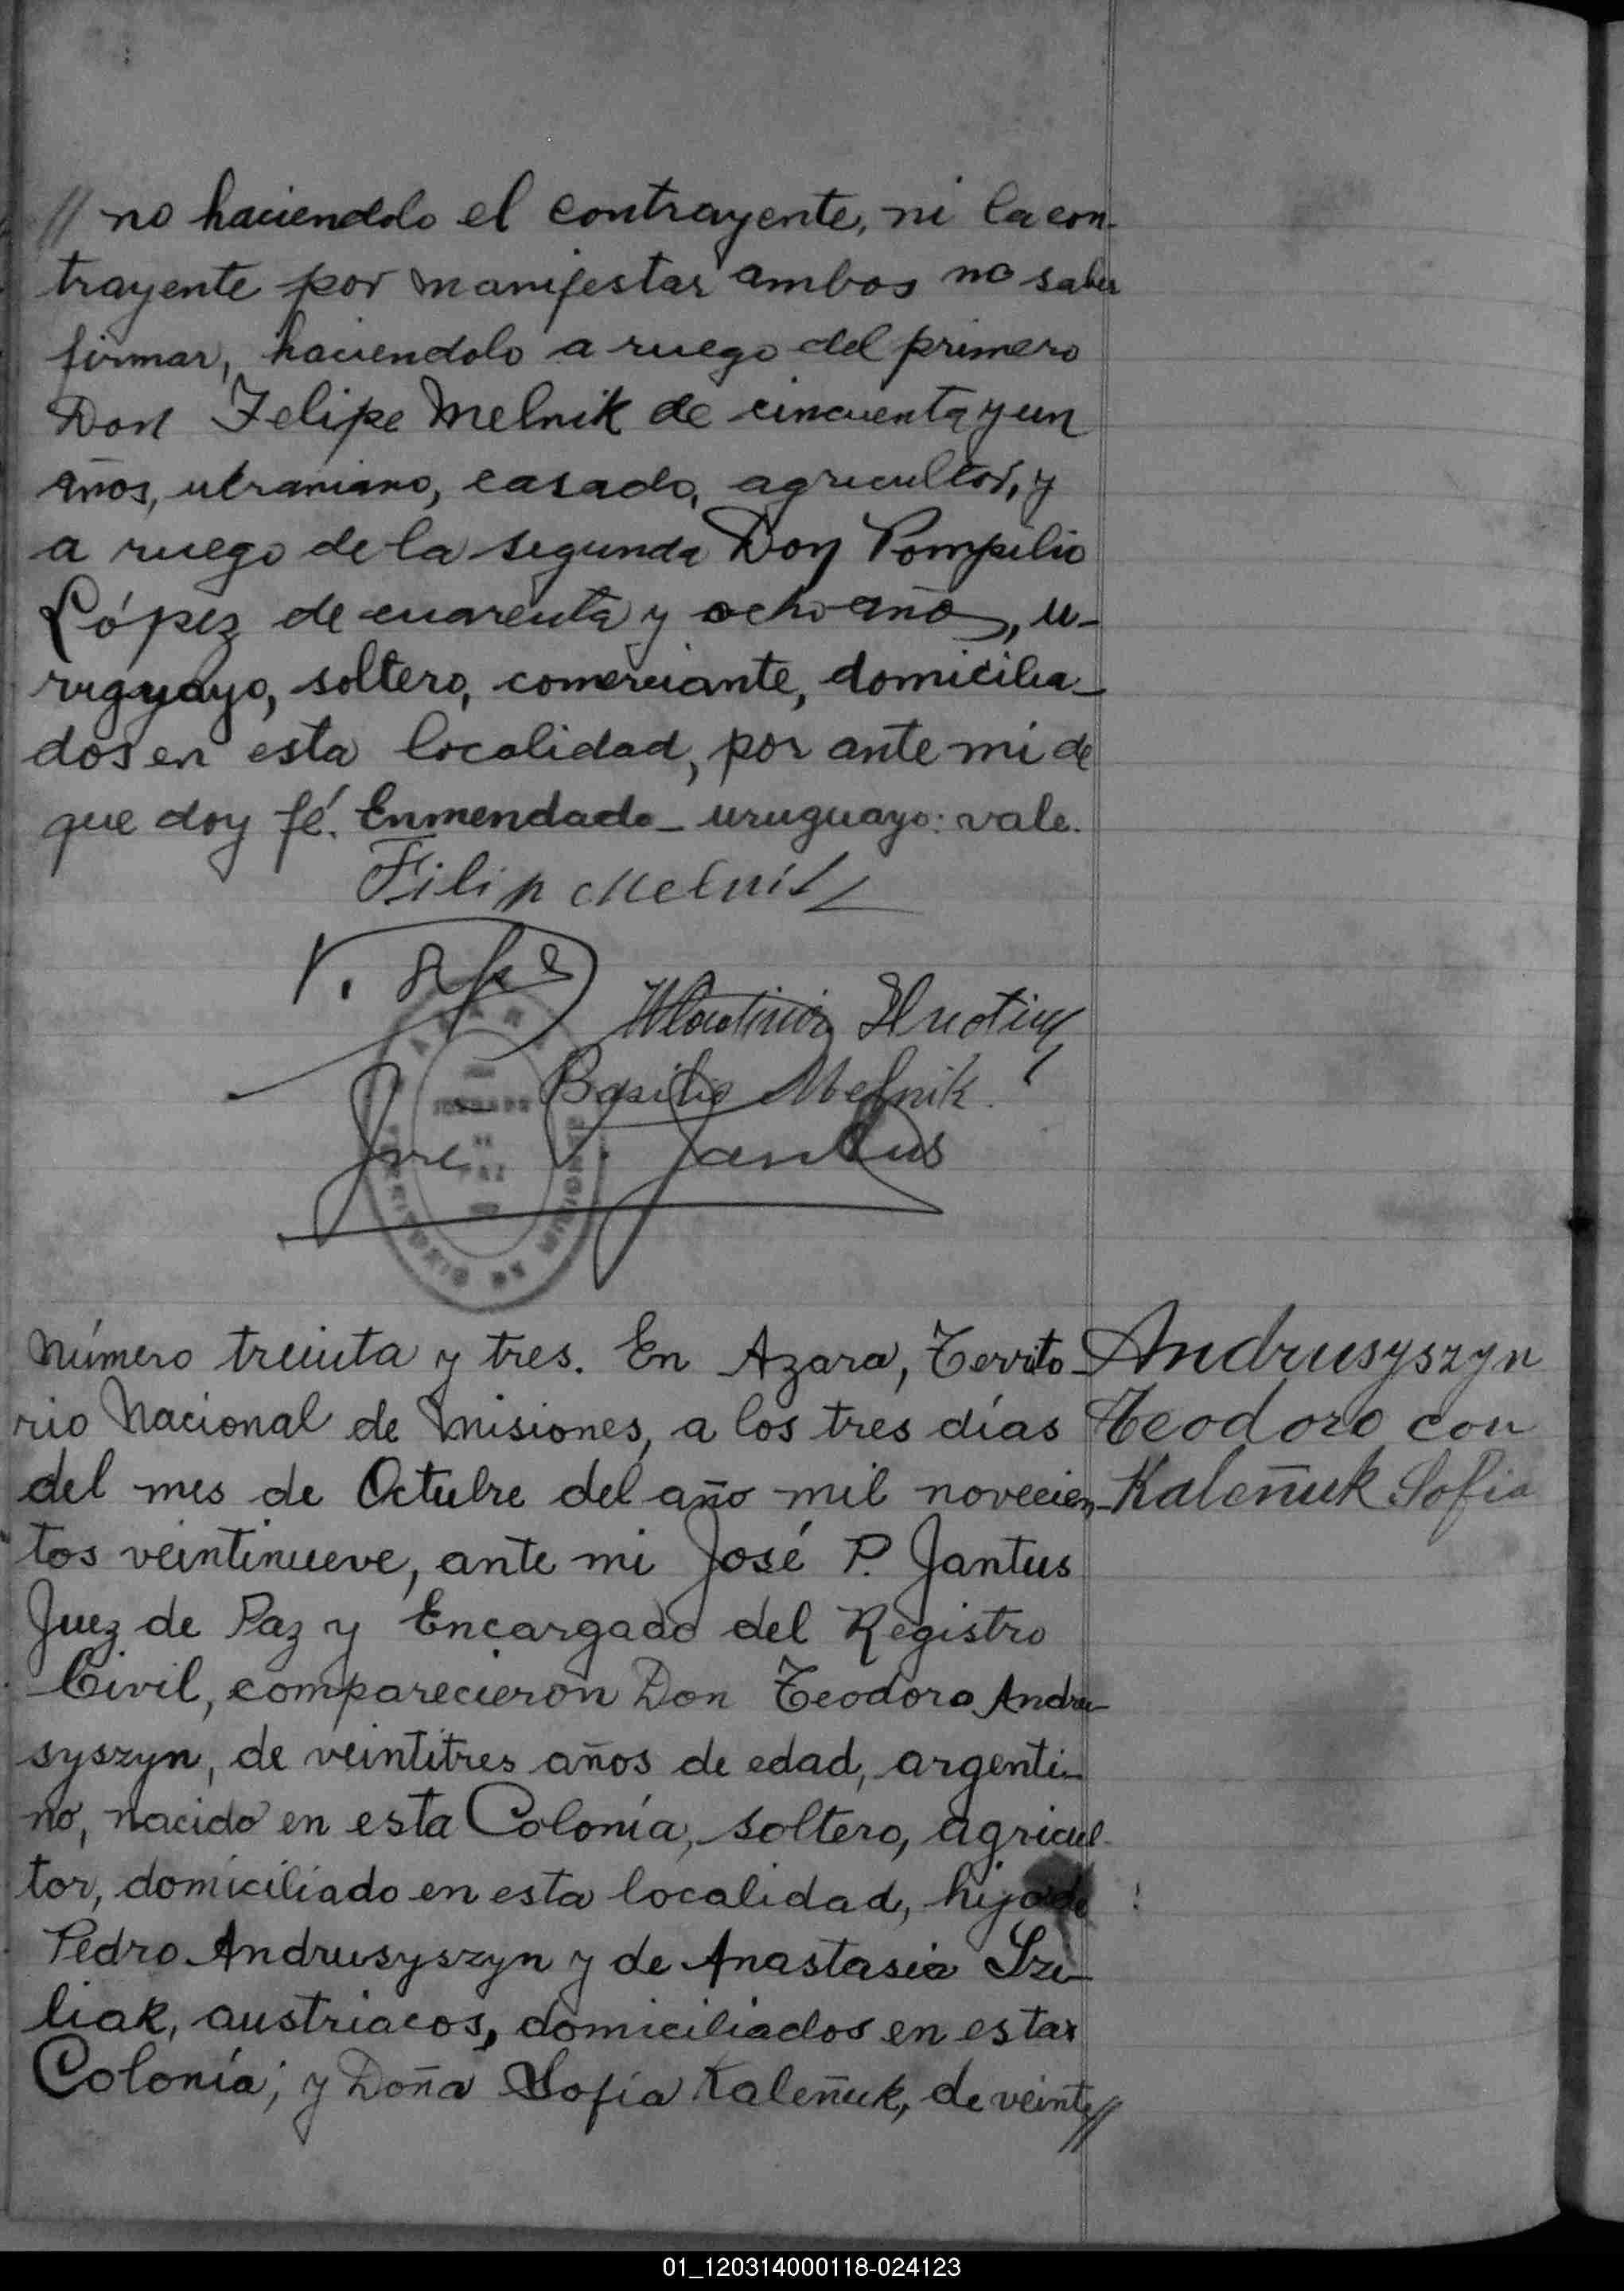 // no haciendolo el contrayente, ni la con-
trayente por manifestar ambos no saber
firmar, haciendolo a ruego del primero
Don Felipe Melnik de cincuenta y un
años, ukraniano, casado, agricultor, y
a ruego de la segunda Don Pompilio
López de cuarenta y ocho años, u-
ruguayo, soltero, comerciante, domicilia-
dos en esta localidad, por ante mi de
que doy fé. Enmendado_ uruguayo: vale.
Filip Melnik
Basilio Melnik
José P. Jantus
TERRITORIO DE MISIONES
Número treinta y tres. En Azara, Territo-
rio Nacional de Misiones, a los tres días
del mes de Octubre del año mil novecien-
tos veintinueve, ante mi José P. Jantus
Juez de Paz y Encargado del Registro
Civil, comparecieron Don Teodoro Andru-
syszyn, de veintitres años de edad, argenti-
no, nacido en esta Colonia, soltero, agricul-
tor, domiciliado en esta localidad, hijo de
Pedro Andrusyszyn y de Anastasia Szi-
liak, austriacos, domiciliados en esta
Colonía; y Doña Sofía Kaleñuk, de veinte//
Andrusyszyn
Teodoro con
Kaleñuk Sofia
01_120314000118-024123